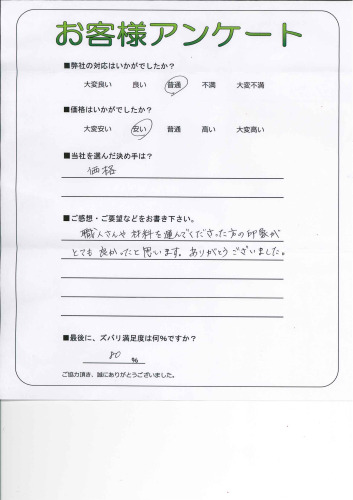 お客様アンケート
■弊社の対応はいかがでしたか？
大変良い 良い 普通 不満 大変不満
■価格はいかがでしたか？
大変安い 安い 普通 高い 大変高い
■当社を選んだ決め手は？
価格
■ご感想・ご要望などをお書き下さい。
職人さんや材料を運んでくださった方の印象が
とても良かったと思います。ありがとうございました。
■最後に、ズバリ満足度は何%ですか？
80 %
ご協力頂き、誠にありがとうございました。